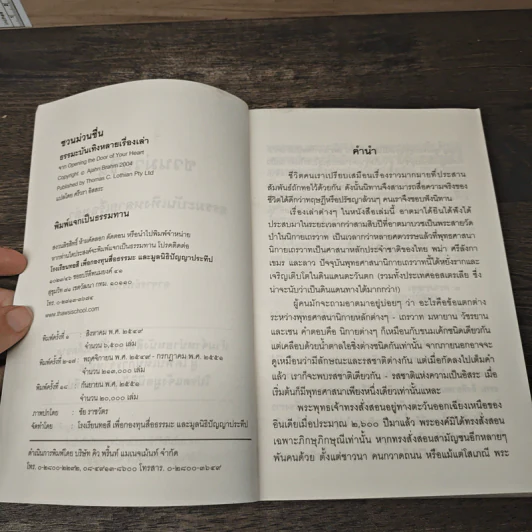 ชวนม่วนชื่น
ธรรมะบันเทิงหลายเรื่องเล่า
จาก Opening the Door of Your Heart
Copyright © Ajahn Brahm 2004
Published by Thomas C. Lothian Pty Ltd
แปลโดย ศรีวรา อิสสระ
พิมพ์แจกเป็นธรรมทาน
สงวนลิขสิทธิ์ ห้ามคัดลอก ตัดตอน หรือนำไปพิมพ์จำหน่าย
หากท่านใดประสงค์จะพิมพ์แจกเป็นธรรมทาน โปรดติดต่อ
โรงเรียนทอสี เพื่อกองทุนสื่อธรรมะ และมูลนิธิปัญญาประทีป
๑๐๒๓/๔๖ ซอยปรีดีพนมยงค์ ๔๑
สุขุมวิท ๗๑ เขตวัฒนา กทม. ๑๐๑๑๐
www.thawsischool.com
พิมพ์ครั้งที่ ๑ : สิงหาคม พ.ศ. ๒๕๔๙
จำนวน ๖,๕๐๐ เล่ม
พฤศจิกายน พ.ศ. ๒๕๔๙ - กรกฎาคม พ.ศ. ๒๕๕๑
จำนวน ๒๑๓,๐๐๐ เล่ม
กันยายน พ.ศ. ๒๕๕๑
จำนวน ๒๐,๐๐๐ เล่ม
ภาพปกโดย : ชัย ราชวัตร
จัดทำโดย : โรงเรียนทอสี เพื่อกองทุนสื่อธรรมะ และมูลนิธิปัญญาประทีป
ดำเนินการพิมพ์โดย บริษัท คิว พริ้นท์ แมเนจเม้นท์ จำกัด
คำนำ
ชีวิตคนเราเปรียบเสมือนเรื่องราวมากมายที่ประสาน
สัมพันธ์ถักทอไว้ด้วยกัน ดังนั้นนิทานจึงสามารถสื่อความจริงของ
ชีวิตได้ดีกว่าทฤษฎีหรือปรัชญาล้วนๆ คนเราจึงชอบฟังนิทาน
เรื่องเล่าต่างๆ ในหนังสือเล่มนี้ อาตมาได้ยินได้ฟังได้
ประสบมาในระยะเวลากว่าสามสิบปีที่อาตมาบวชเป็นพระสายวัด
ป่าในนิกายเถรวาท เป็นเวลากว่าหลายศตวรรษแล้วที่พุทธศาสนา
นิกายเถรวาทเป็นศาสนาหลักประจำชาติของไทย พม่า ศรีลังกา
เขมร และลาว ปัจจุบันพุทธศาสนานิกายเถรวาทนี้ได้หยั่งรากและ
เจริญเติบโตในดินแดนตะวันตก (รวมทั้งประเทศออสเตรเลีย ซึ่ง
น่าจะนับว่าเป็นดินแดนทางใต้มากกว่า!)
ผู้คนมักจะถามอาตมาอยู่บ่อยๆ ว่า อะไรคือข้อแตกต่าง
ระหว่างพุทธศาสนานิกายหลักต่างๆ - เถรวาท มหายาน วัชรยาน
และเซน คำตอบคือ นิกายต่างๆ ก็เหมือนกับขนมเค้กชนิดเดียวกัน
แต่เคลือบด้วยน้ำตาลไอซิ่งต่างชนิดกันเท่านั้น จากภายนอกอาจจะ
ดูเหมือนว่ามีลักษณะและรสชาติต่างกัน แต่เมื่อกัดลงไปเต็มคำ
แล้ว เราก็จะพบรสชาติเดียวกัน - รสชาติแห่งความเป็นอิสระ เมื่อ
เริ่มต้นก็มีพุทธศาสนาเพียงหนึ่งเดียวเท่านั้นแหละ
พระพุทธเจ้าทรงสั่งสอนอยู่ทางตะวันออกเฉียงเหนือของ
อินเดียเมื่อประมาณ ๒,๖๐๐ ปีมาแล้ว พระองค์มิได้ทรงสั่งสอน
เฉพาะภิกษุภิกษุณีเท่านั้น หากทรงสั่งสอนสามัญชนอีกหลายๆ
พันคนด้วย ตั้งแต่ชาวนา คนกวาดถนน หรือแม้แต่โสเภณี พระ